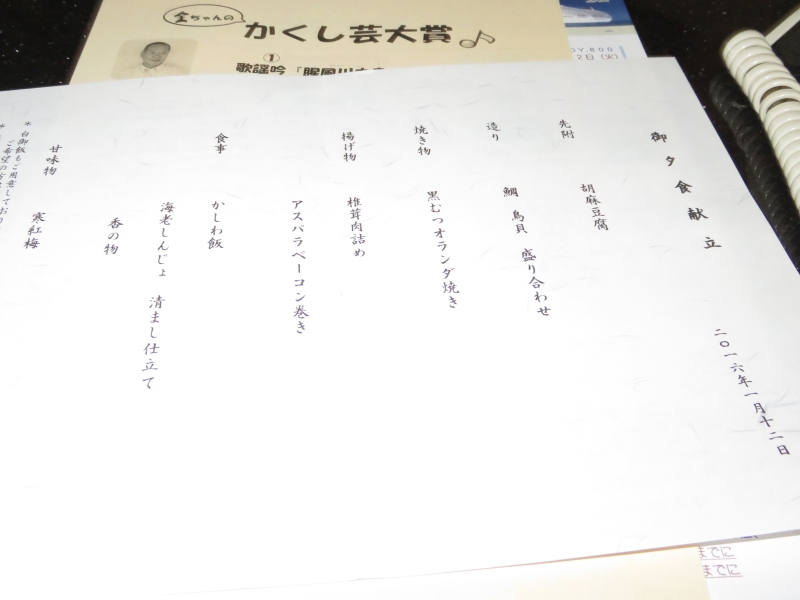 金ちゃんの
かくし芸大賞
①
歌謡吟
御夕食献立
二〇一六年一月十二日
先附
胡麻豆腐
造り
鯛 鳥貝 盛り合わせ
焼き物
黒むつオランダ焼き
揚げ物
椎茸肉詰め
アスパラベーコン巻き
食事
かしわ飯
海老しんじょ 清まし仕立て
香の物
甘味物
寒紅梅
＊白御飯もご用意しており
までに
までに